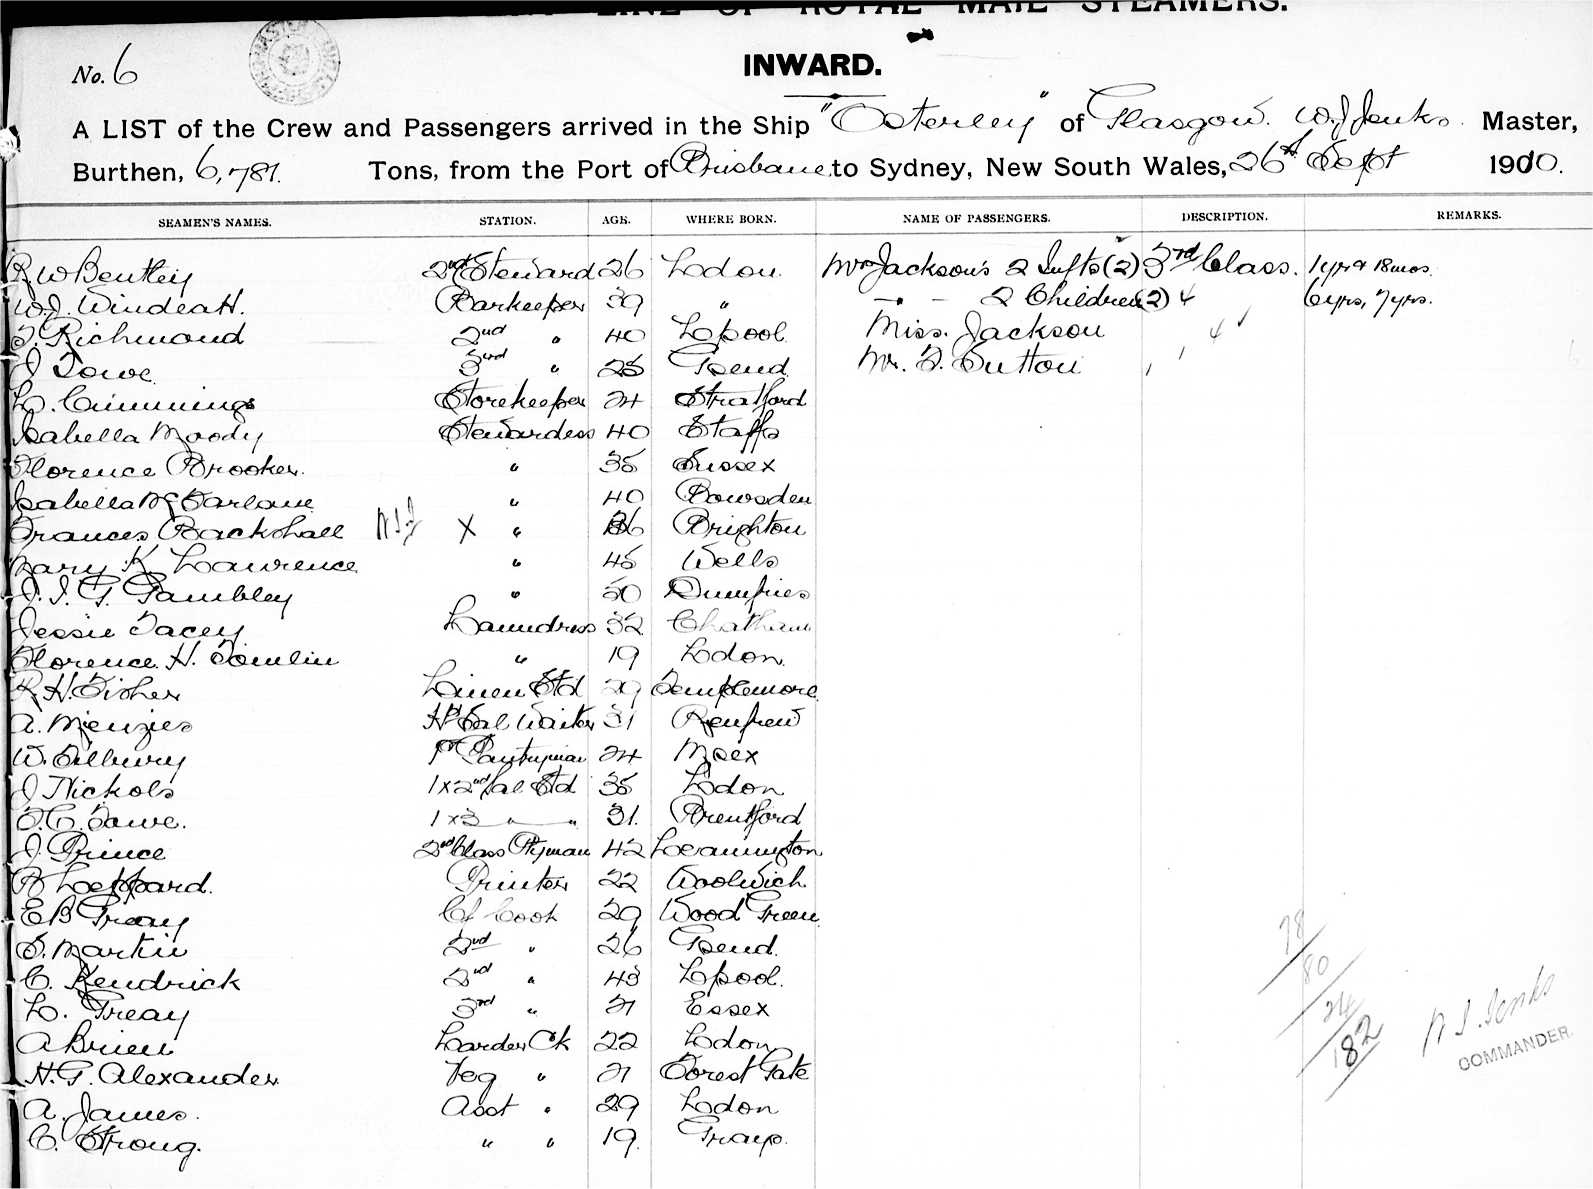 LINE OF ROYAL MAIL STEAMERS.
No. 6
INWARD.
A LIST of the Crew and Passengers arrived in the Ship "Osterley" of Glasgow. W.J Jenks Master,
Burthen, 6,781. Tons, from the Port of Brisbane to Sydney, New South Wales, 26th Sept 1910.
SEAMEN'S NAMES. STATION. AGE. WHERE BORN. NAME OF PASSENGERS. DESCRIPTION. REMARKS.
R W Bentley 2nd Steward 26 Lodon Mrs Jackson's 2 Infts (2) 3rd Class. 1yr & 18mos.
W.J. Windeatt. Barkeeper 39 " " - 2 Children (2) " 6yrs, 7yrs.
T. Richmond 2nd " 40 Lpool Miss. Jackson "
J Towe 3rd " 25 Gsend Mr. F. Sutton "
L. Cimmings Storekeeper 24 Stratford
Isabella Moody Stewardess 40 Staffs
Florence Brooker. " 35 Sussex
Isabella McFarlane " 40 Bowsden
Frances Backshall X " 36 Brighton
Mary K. Lawrence " 45 Wells
J. I. G. Gambley " 50 Dumfries
Jessie Tacey Laundress 32 Chatham
Florence. H. Tomlin " 19 Lodon.
R. H. Fisher Linen Std 29 Templemore
A. Menzies Hd Sal Waiter 31 Renfrew
W. Silbury 1st Pantryman 24 Msex
J Nickols 1x2nd Sal Std 35 Lodon
F. C. Towe. 1x3 " " 31. Brentford
J. Prince 2nd Class Ptyman 42 Leamington
B Leppard. Printer 22 Woolwich
E B Greay Cf Cook 29 Wood Green
S. Martin 2nd " 26 Gsend.
C. Kendrick 2nd " 43 Lpool.
L. Greay 3rd " 21 Essex
A Brien Larder Ck 22 Lodon
H. G. Alexander Veg " 21 Forest Gate
A. James. Asst " 29 Lodon
C. Strong. " " 19. Grays.
78
80
24
182
W J. Jenks
COMMANDER.